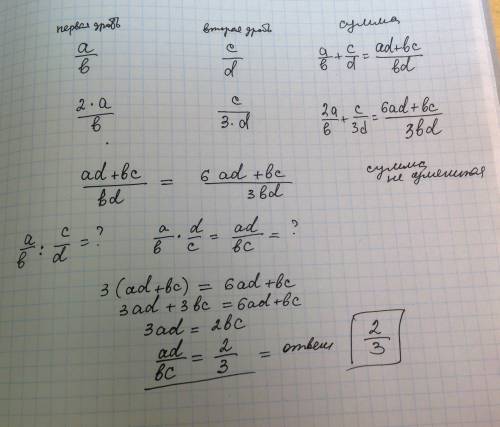 первая дробь вторая дробь сумма
a/b c/d a/b + c/d = ad+bc/bd
2·a/b c/3·d 2a/b + c/3d = 6ad+bc/3bd
ad+bc/bd = 6ad+bc/3bd сумма
не
a/b : c/d = ? a/b · d/c = ad/bc = ?
3(ad+bc) = 6ad+bc
3ad+3bc = 6ad+bc
3ad = 2bc
ad/bc = 2/3 = ответ 2/3